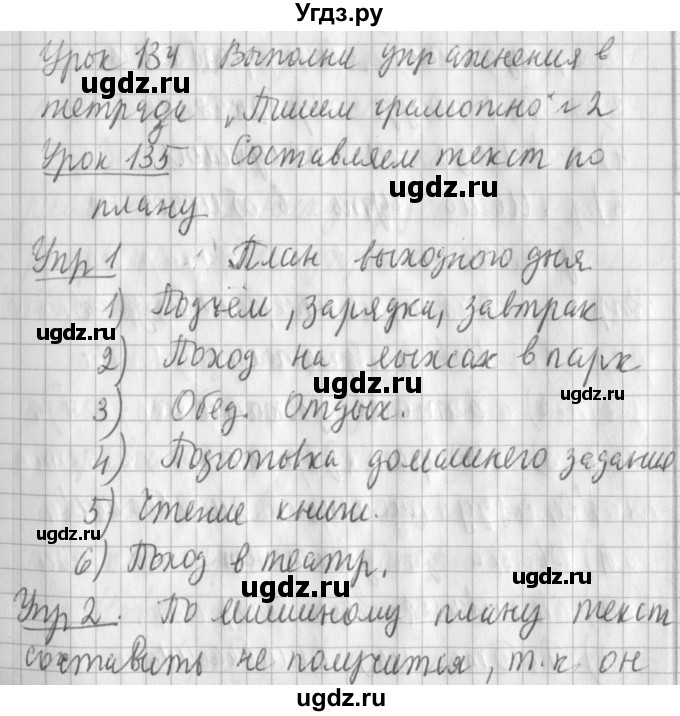 Угдз.ру
Урок 134 Выполни упражнения в
тетради „Пишем грамотно" №2
Урок 135 Составляем текст по
плану
Упр 1 План выходного дня
1) Подъём, зарядка, завтрак
2) Поход на лыжах в парк
3) Обед. Отдых.
4) Подготовка домашнего задания
5) Чтение книги.
6) Поход в театр.
Упр 2. По Мишиному плану текст
составить не получится, т.к. он
ugdz.ru
ugdz.ru
ugdz.ru
ugdz.ru
ugdz.ru
ugdz.ru
ugdz.ru
ugdz.ru
ugdz.ru
ugdz.ru
ugdz.ru